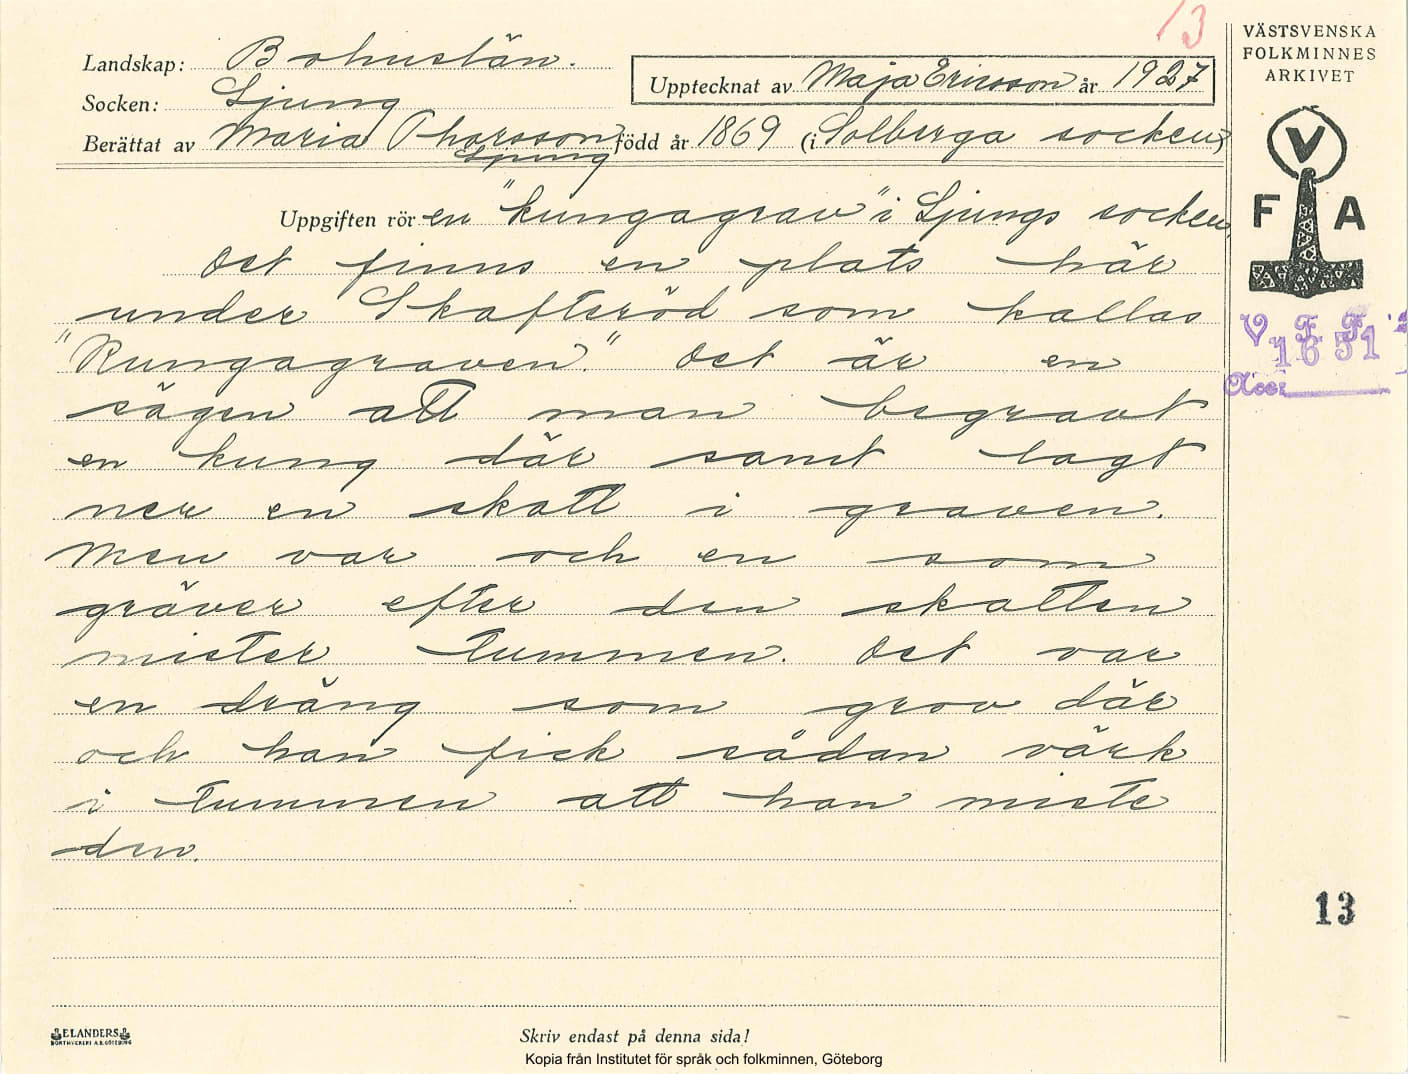 13
VÄSTSVENSKA
FOLKMINNES
ARKIVET
Landskap: Bohuslän.
Socken: Ljung
Upptecknat av Maja Ericsson år 1927
Berättat av Maria Thorsson född år 1869 (i Solberga socken)
Ljung
V
F A
Uppgiften rör en "kungagrav" i Ljungs socken.
Det finns en plats här
under Skafteröd som kallas
"Kungagraven." Det är en
sägen att man begravt
en kung där samt lagt
ner en skatt i graven.
Men var och en som
gräver efter den skatten
mister tummen. Det var
en dräng som grov där
och han fick sådan värk
i tummen att han miste
den.
V. F. F.
1651
Acc:
13
ELANDERS
BOKTRYCKERI A.B. GÖTEBORG
Skriv endast på denna sida!
Kopia från Institutet för språk och folkminnen, Göteborg